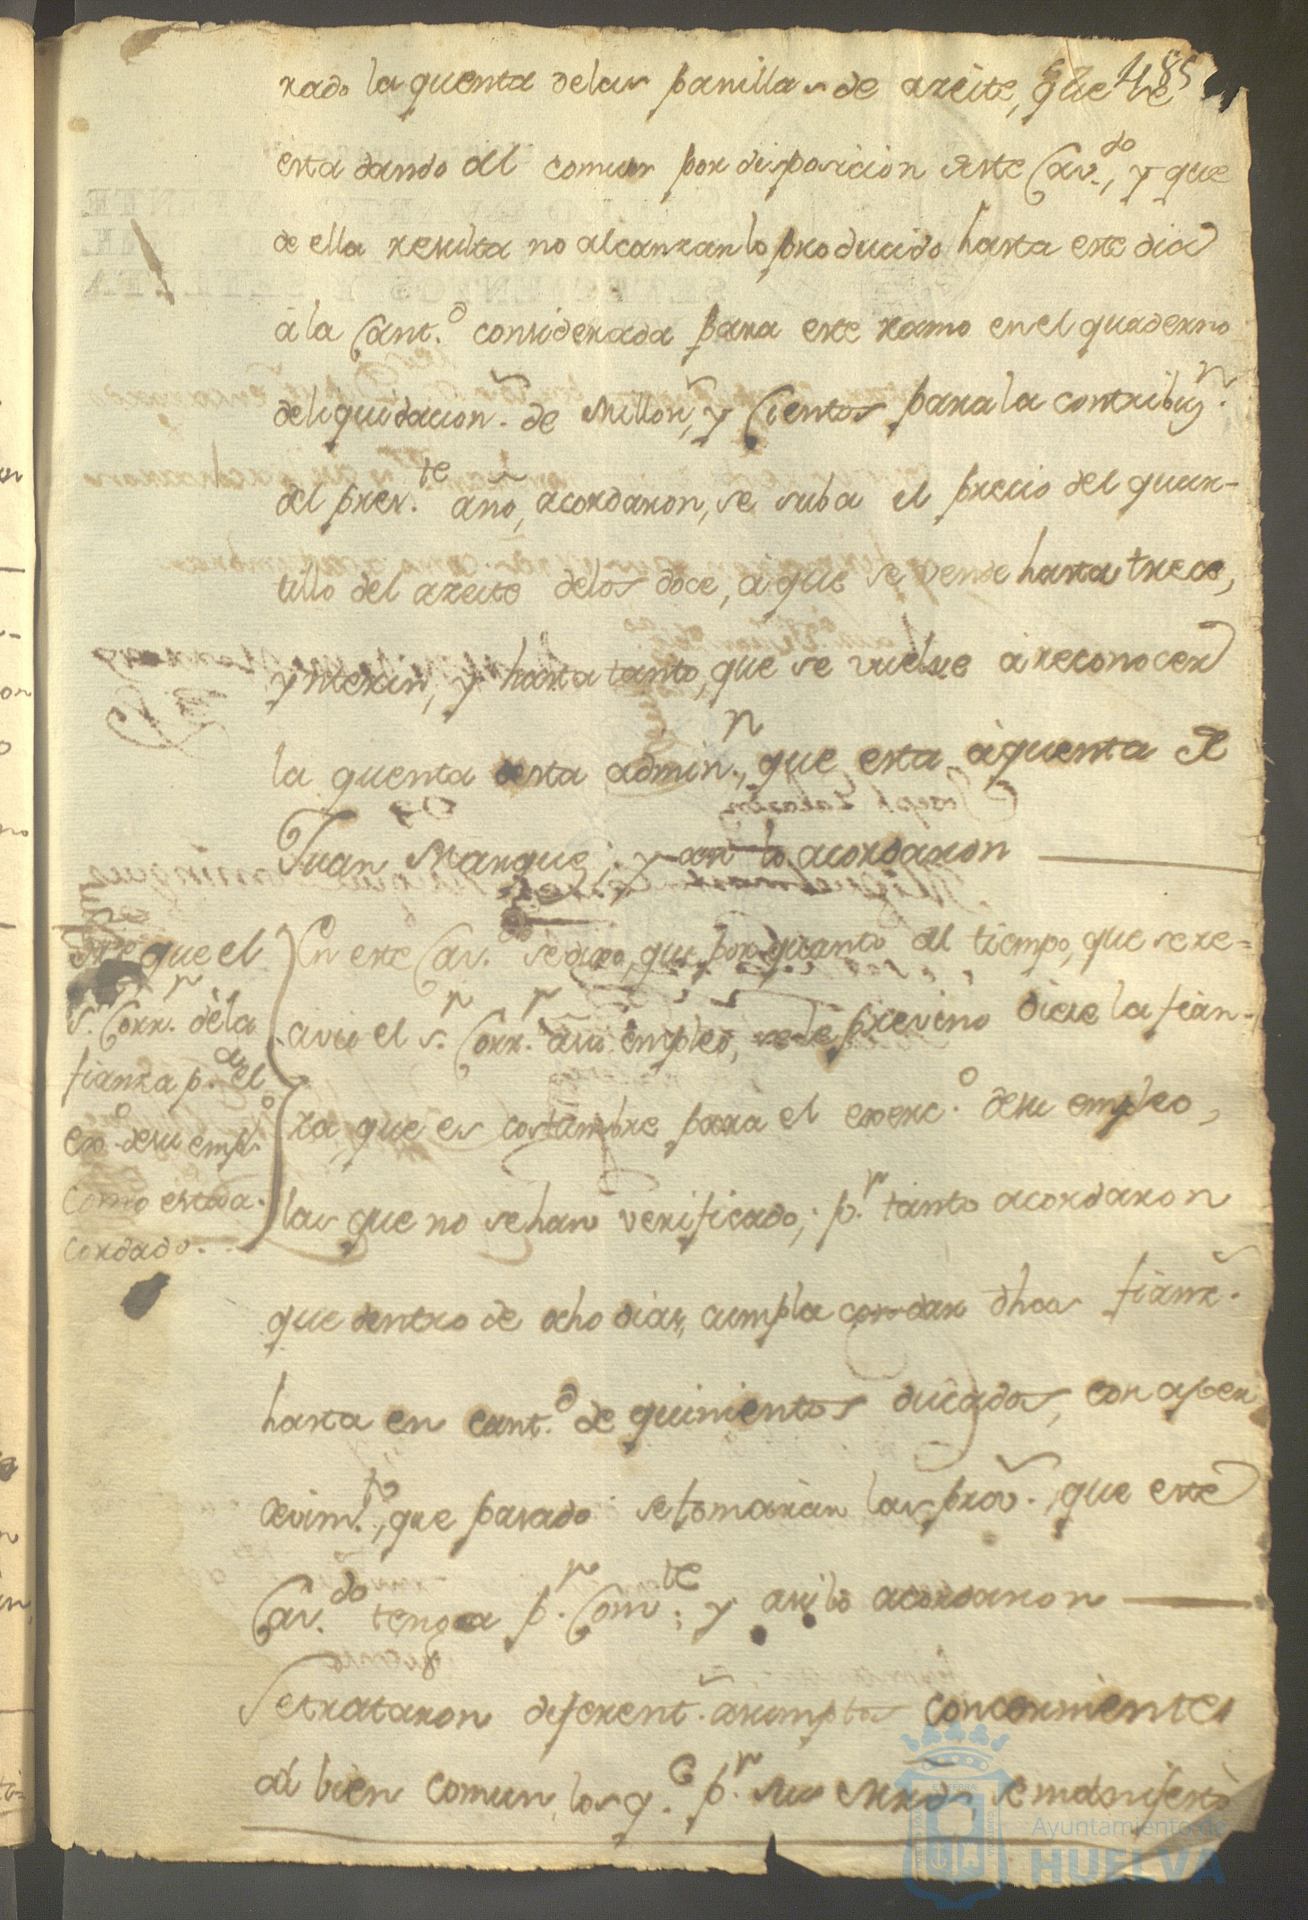 485
rado la quenta delas panillas de azeite, que se
esta dando al comun por disposicion deste Cav.do, y que
de ella resulta no alcanzan lo producido hasta este dia
â la Cant.d considerada para este ramo en el quaderno
deliquidacion. de Millon.s, y Cientos para la contribuz.n
del pres.te año, acordaron, se suba el precio del quar-
tillo del azeite delos doce, a que se vende hasta trece,
ynterin, y hasta tanto, que se vuelve â reconocer
la quenta desta admin.n, que esta âquenta de
Juan Marquez; y asi lo acordaron
que el
s.r Corr.r dela
fianza p.a el
ex.o desu emp.o
como esta a-
cordado.
En este Cav.do se dixo, que por quanto al tiempo, que se re=
civio el s.r Corr.r asu empleo, sele previno diese la fian-
za, que es costumbre para el exerc.o desu empleo,
las que no se han verificado; p.r tanto acordaron
que dentro de ocho dias, cumpla con dar dhas fianz.
hasta en cant.d de quinientos ducados, con aper
zevim.to, que pasado se tomaràn las prov., que este
Cav.do tenga p.r Com.te; y asi lo acordaron
Se trataron diferent. asumptos concernientes
al bien comun, los q.e p.r sus Mrds se manifestò
Ayuntamiento de
HUELVA